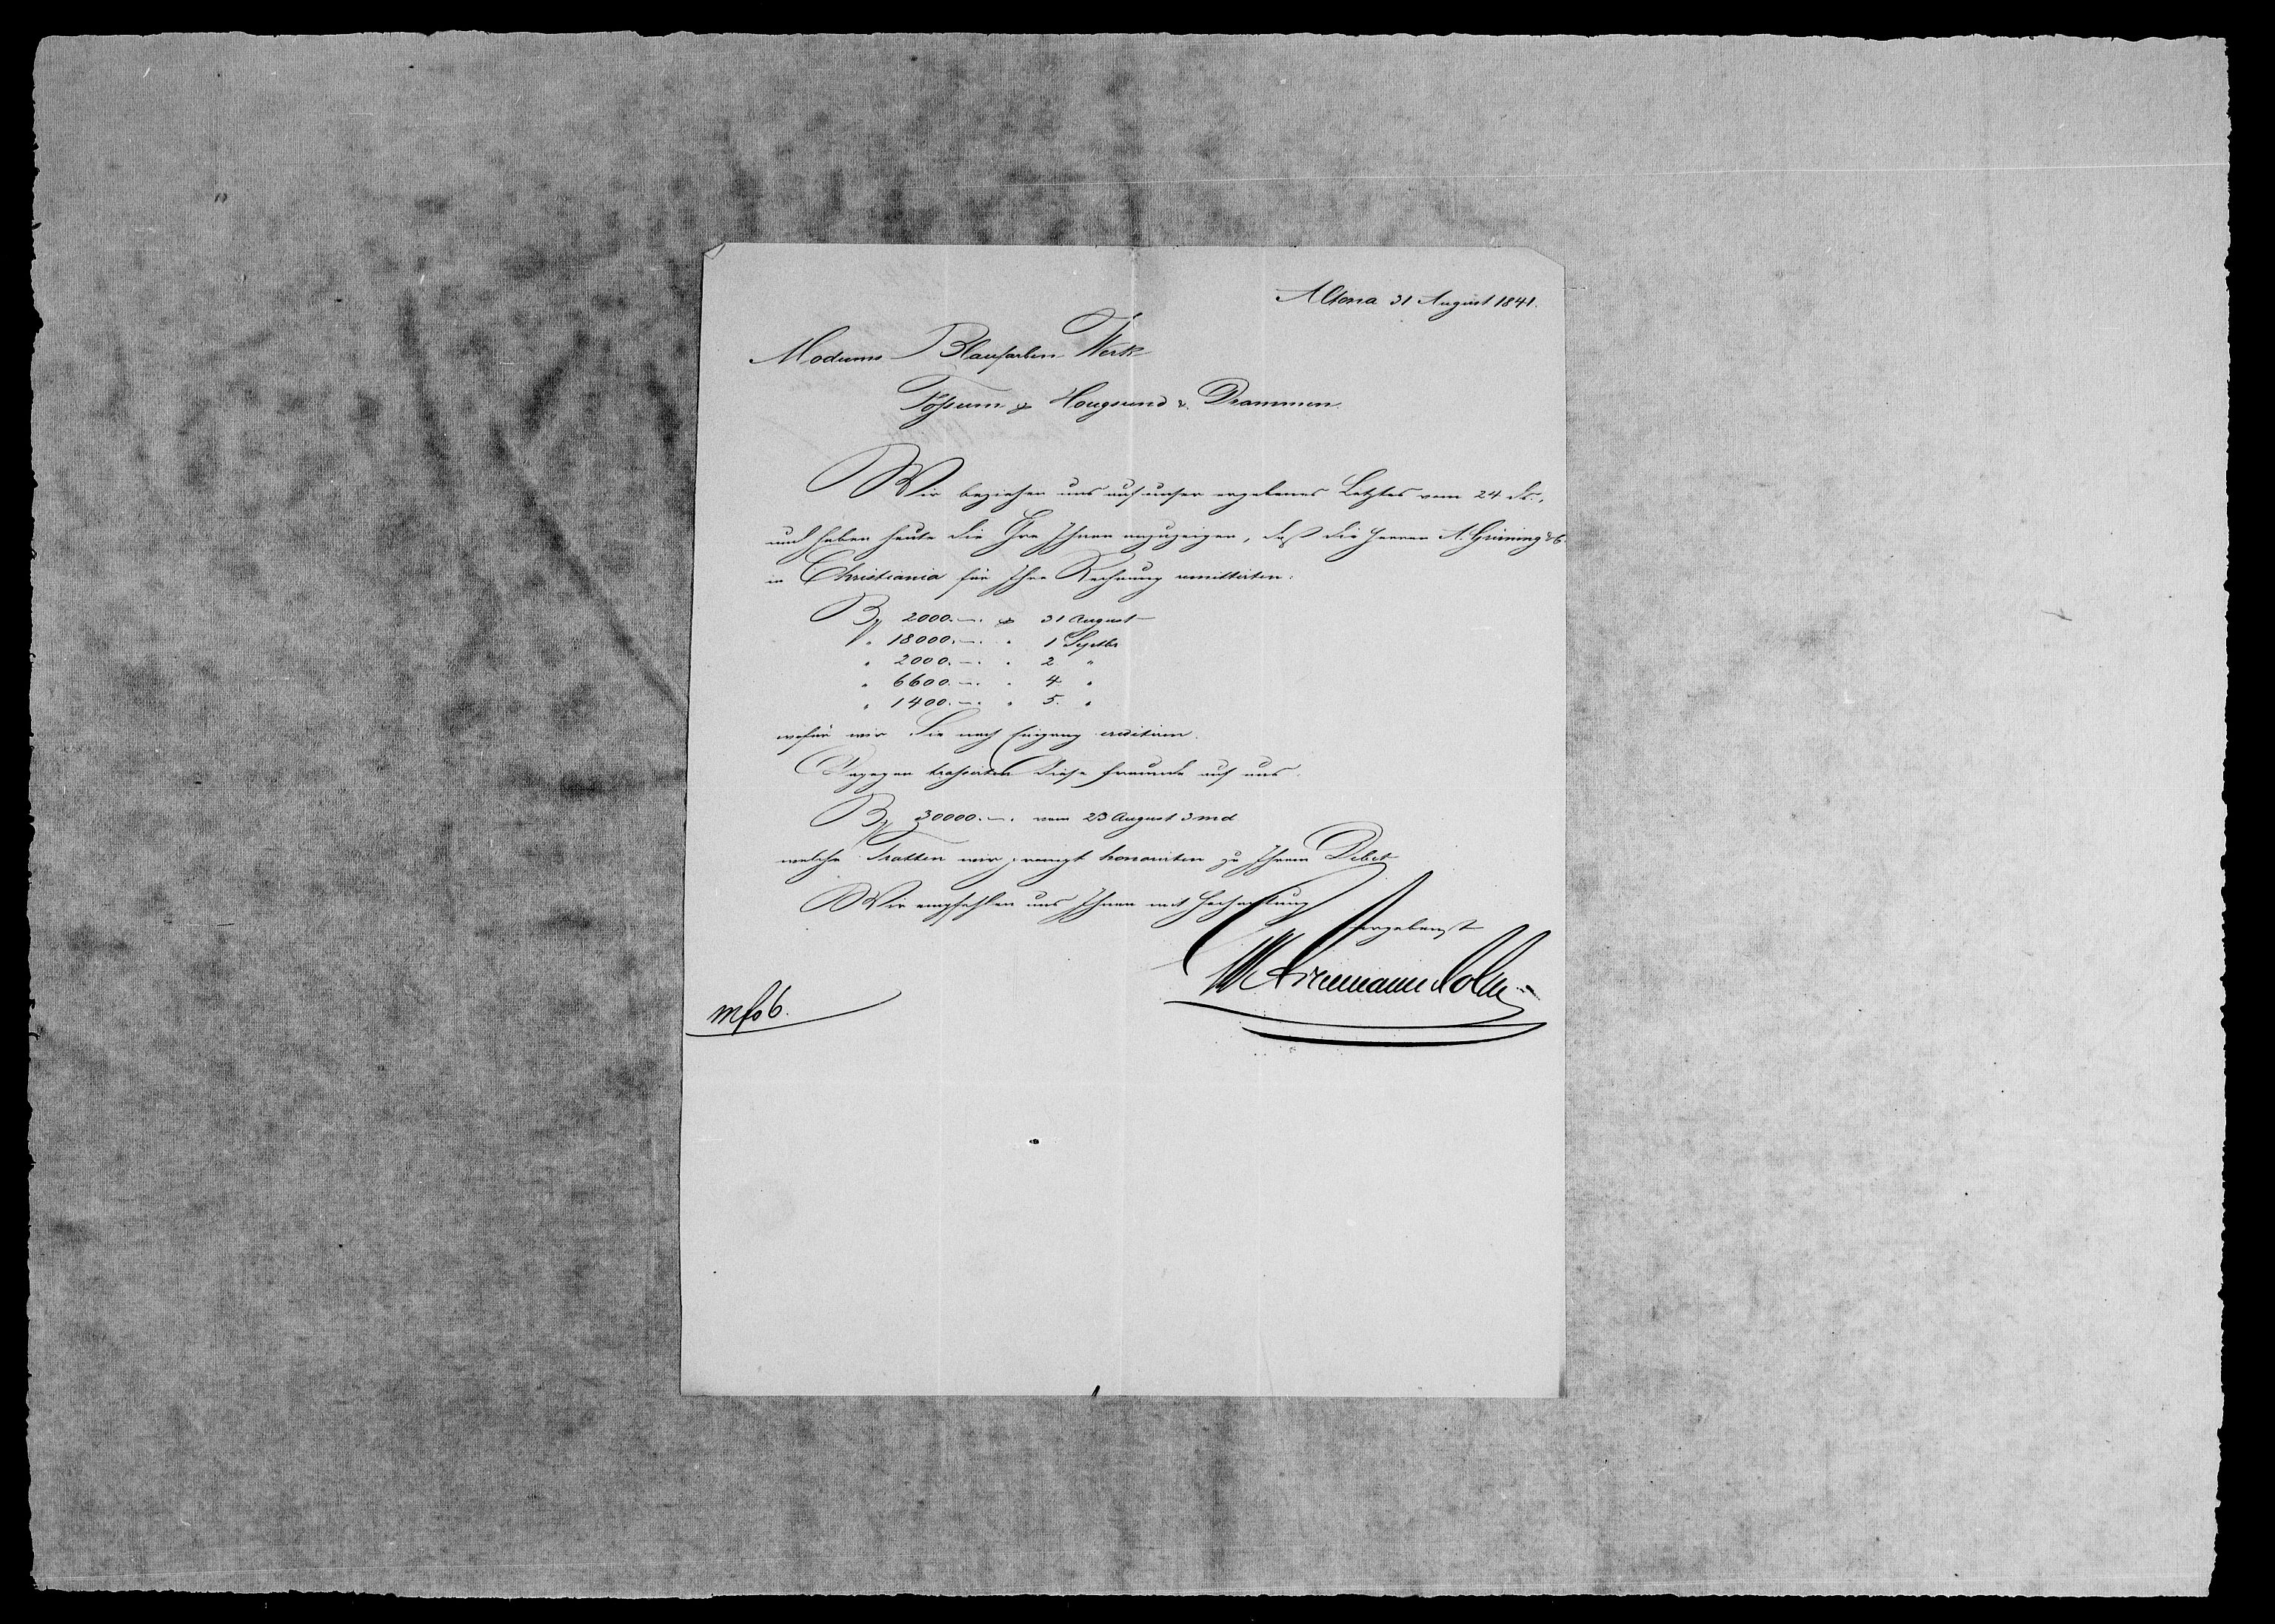 Altona 31 August 1841.
Modums Blaufarben Werk
Fossum p Hougsund v. Drammen.
Wir beziehen uns auf unser ergebenes Letztes vom 24 ds.,
und haben heute die Ehre Ihnen anzuzeigen, daß die Herren A. Grüning & C.
in Christiania für Ihre Rechnung remittirten:
B 2000.—. p 31 August
" 18000.—. " 1 Septbr
" 2000.—. " 2 "
" 6600.—. " 4 "
" 1400.—. " 5. "
wofür wir Sie nach Eingang creditiren.
Dagegen trassirten diese Freunde auf uns:
B 30000.—. vom 23 August 3 md
welche Tratten wir prompt honorirten zu Ihrem Debet
Wir empfehlen uns Ihnen mit Hochachtung
ergebenst